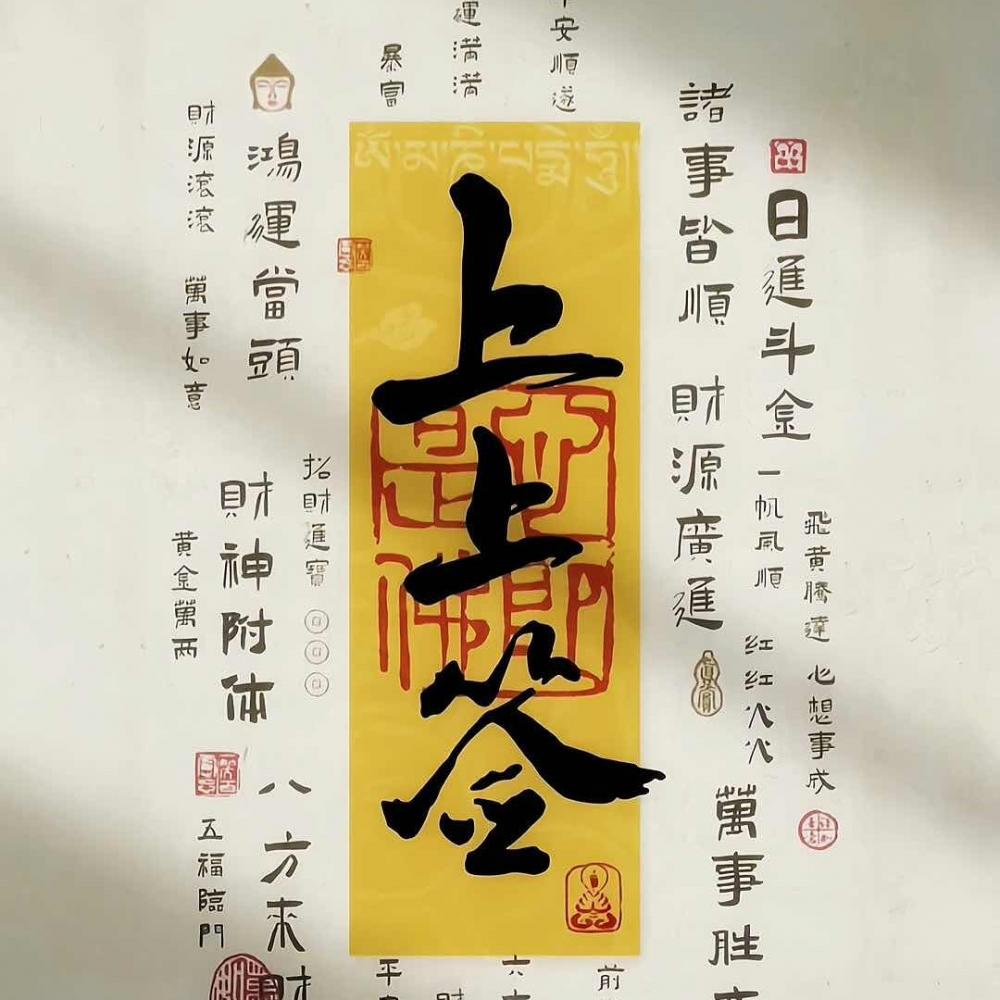 上上签
日進斗金
一帆風順
飛黄騰達
心想事成
紅紅火火
諸事皆順
財源廣進
萬事胜
安順遂
運満満
暴富
鴻運當頭
財源滚滚
萬事如意
招財進寶
財神附体
黄金萬两
八方来財
五福臨門
平
六
前
財